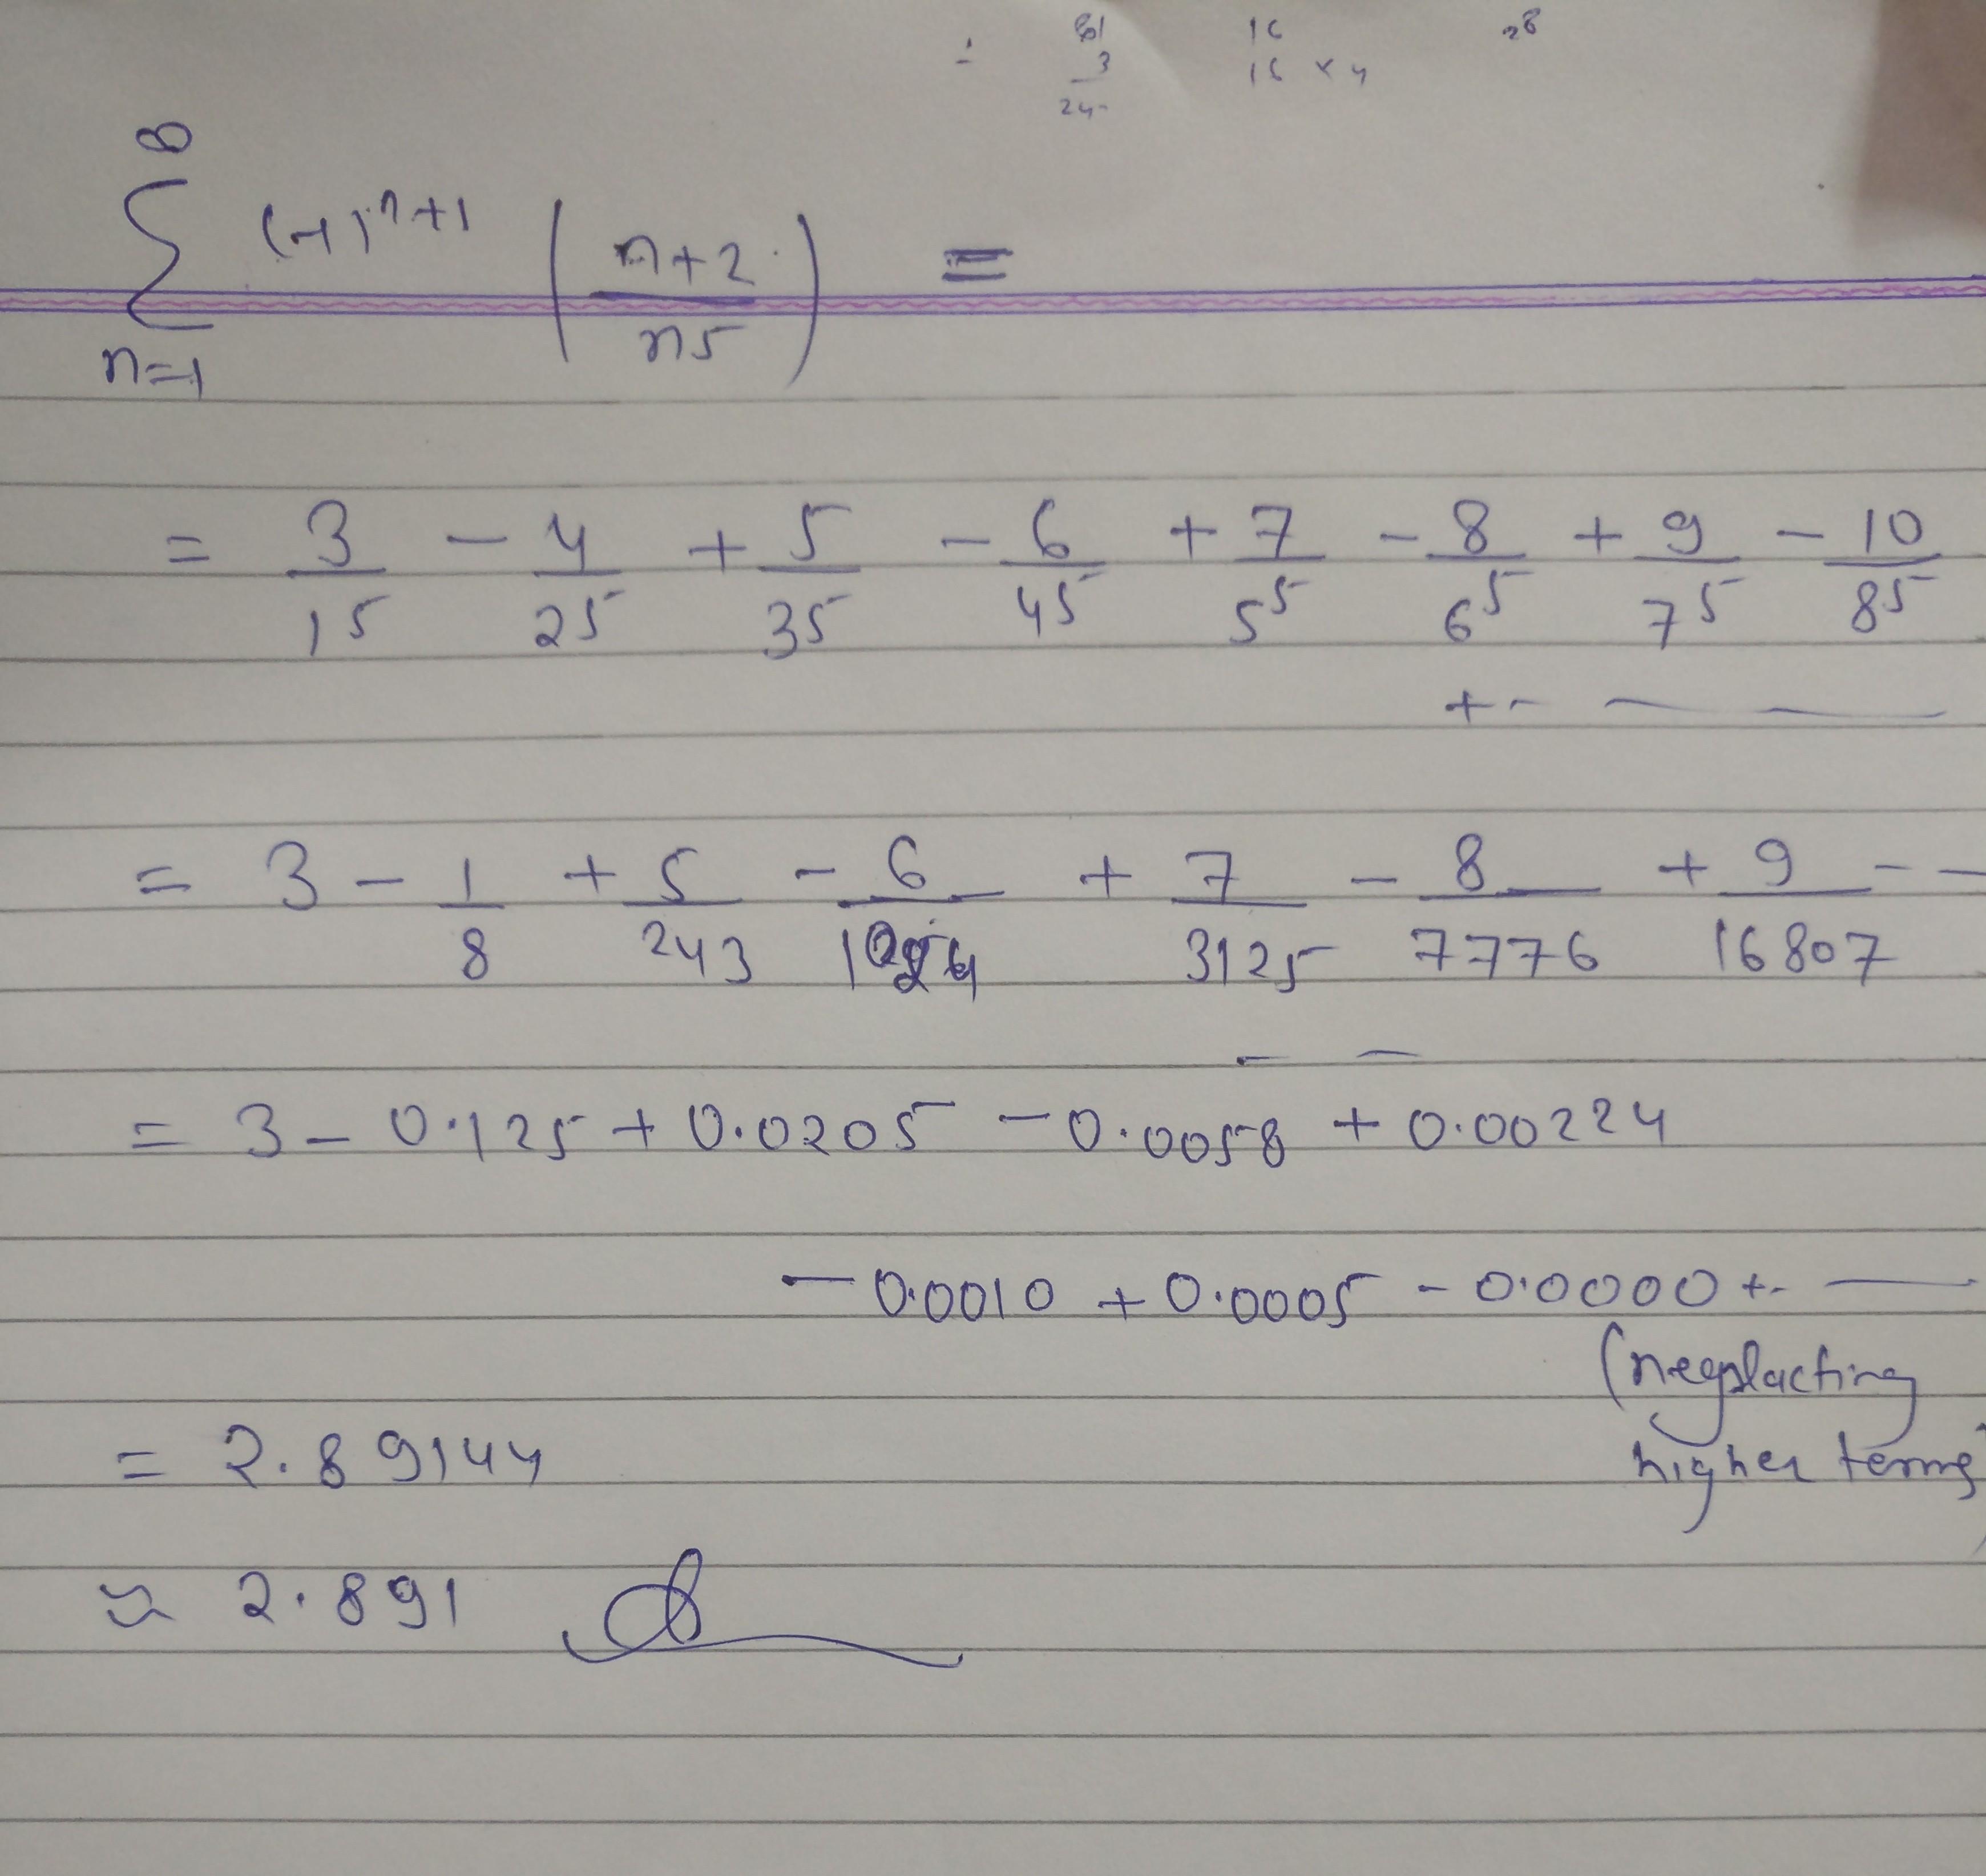 81 16 28
3 16 × 4
24
∞
Σ (-1)ⁿ⁺¹ ( n+2 / n⁵ ) =
n=1
= 3/1⁵ - 4/2⁵ + 5/3⁵ - 6/4⁵ + 7/5⁵ - 8/6⁵ + 9/7⁵ - 10/8⁵
+ - - -
= 3 - 1/8 + 5/243 - 6/1024 + 7/3125 - 8/7776 + 9/16807 - -
- -
= 3 - 0.125 + 0.0205 - 0.0058 + 0.00224
- 0.0010 + 0.0005 - 0.0000 + - -
(neglacting
higher terms)
= 2.89144
≈ 2.891